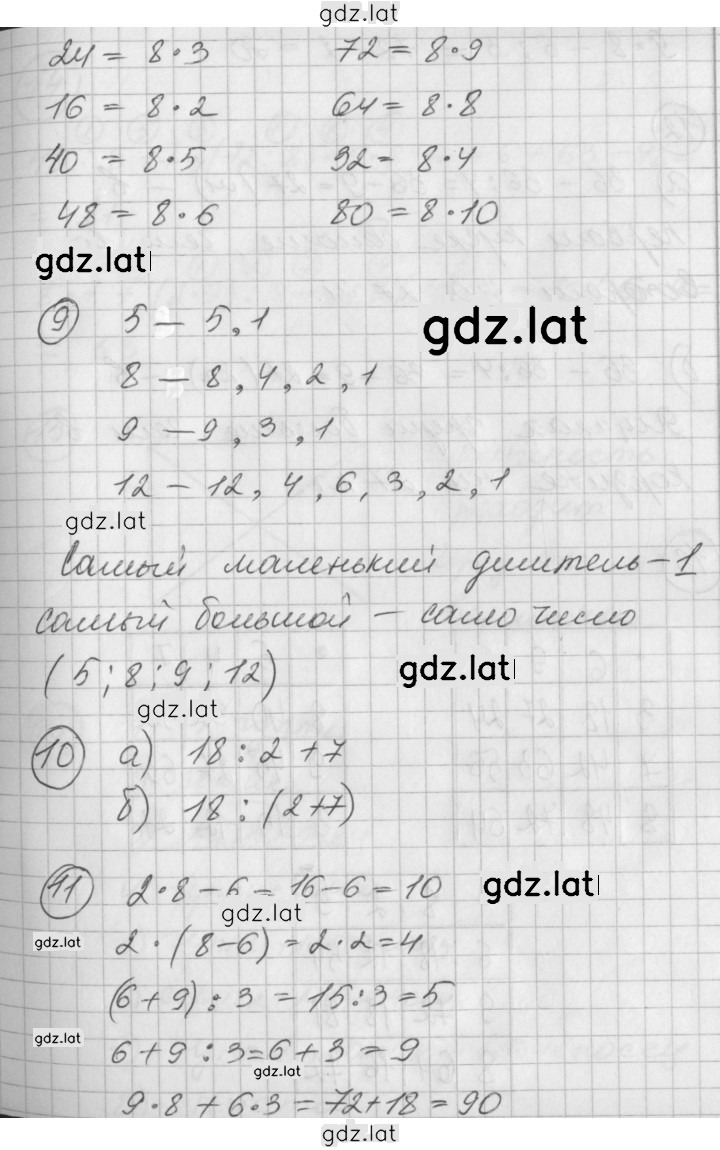 gdz.lat
24 = 8·3 72 = 8·9
16 = 8·2 64 = 8·8
40 = 8·5 32 = 8·4
48 = 8·6 80 = 8·10
gdz.lat
9 5 — 5, 1
gdz.lat
8 — 8, 4, 2, 1
9 — 9, 3, 1
12 — 12, 4, 6, 3, 2, 1
gdz.lat
Самый маленький делитель – 1
самый большой — само число
(5; 8; 9; 12)
gdz.lat
gdz.lat
10 а) 18 : 2 + 7
б) 18 : (2+7)
11 2·8 – 6 = 16 – 6 = 10
gdz.lat
gdz.lat
gdz.lat
2 · (8–6) = 2·2 = 4
(6+9) : 3 = 15 : 3 = 5
gdz.lat
6 + 9 : 3 = 6 + 3 = 9
gdz.lat
9·8 + 6·3 = 72+18 = 90
gdz.lat